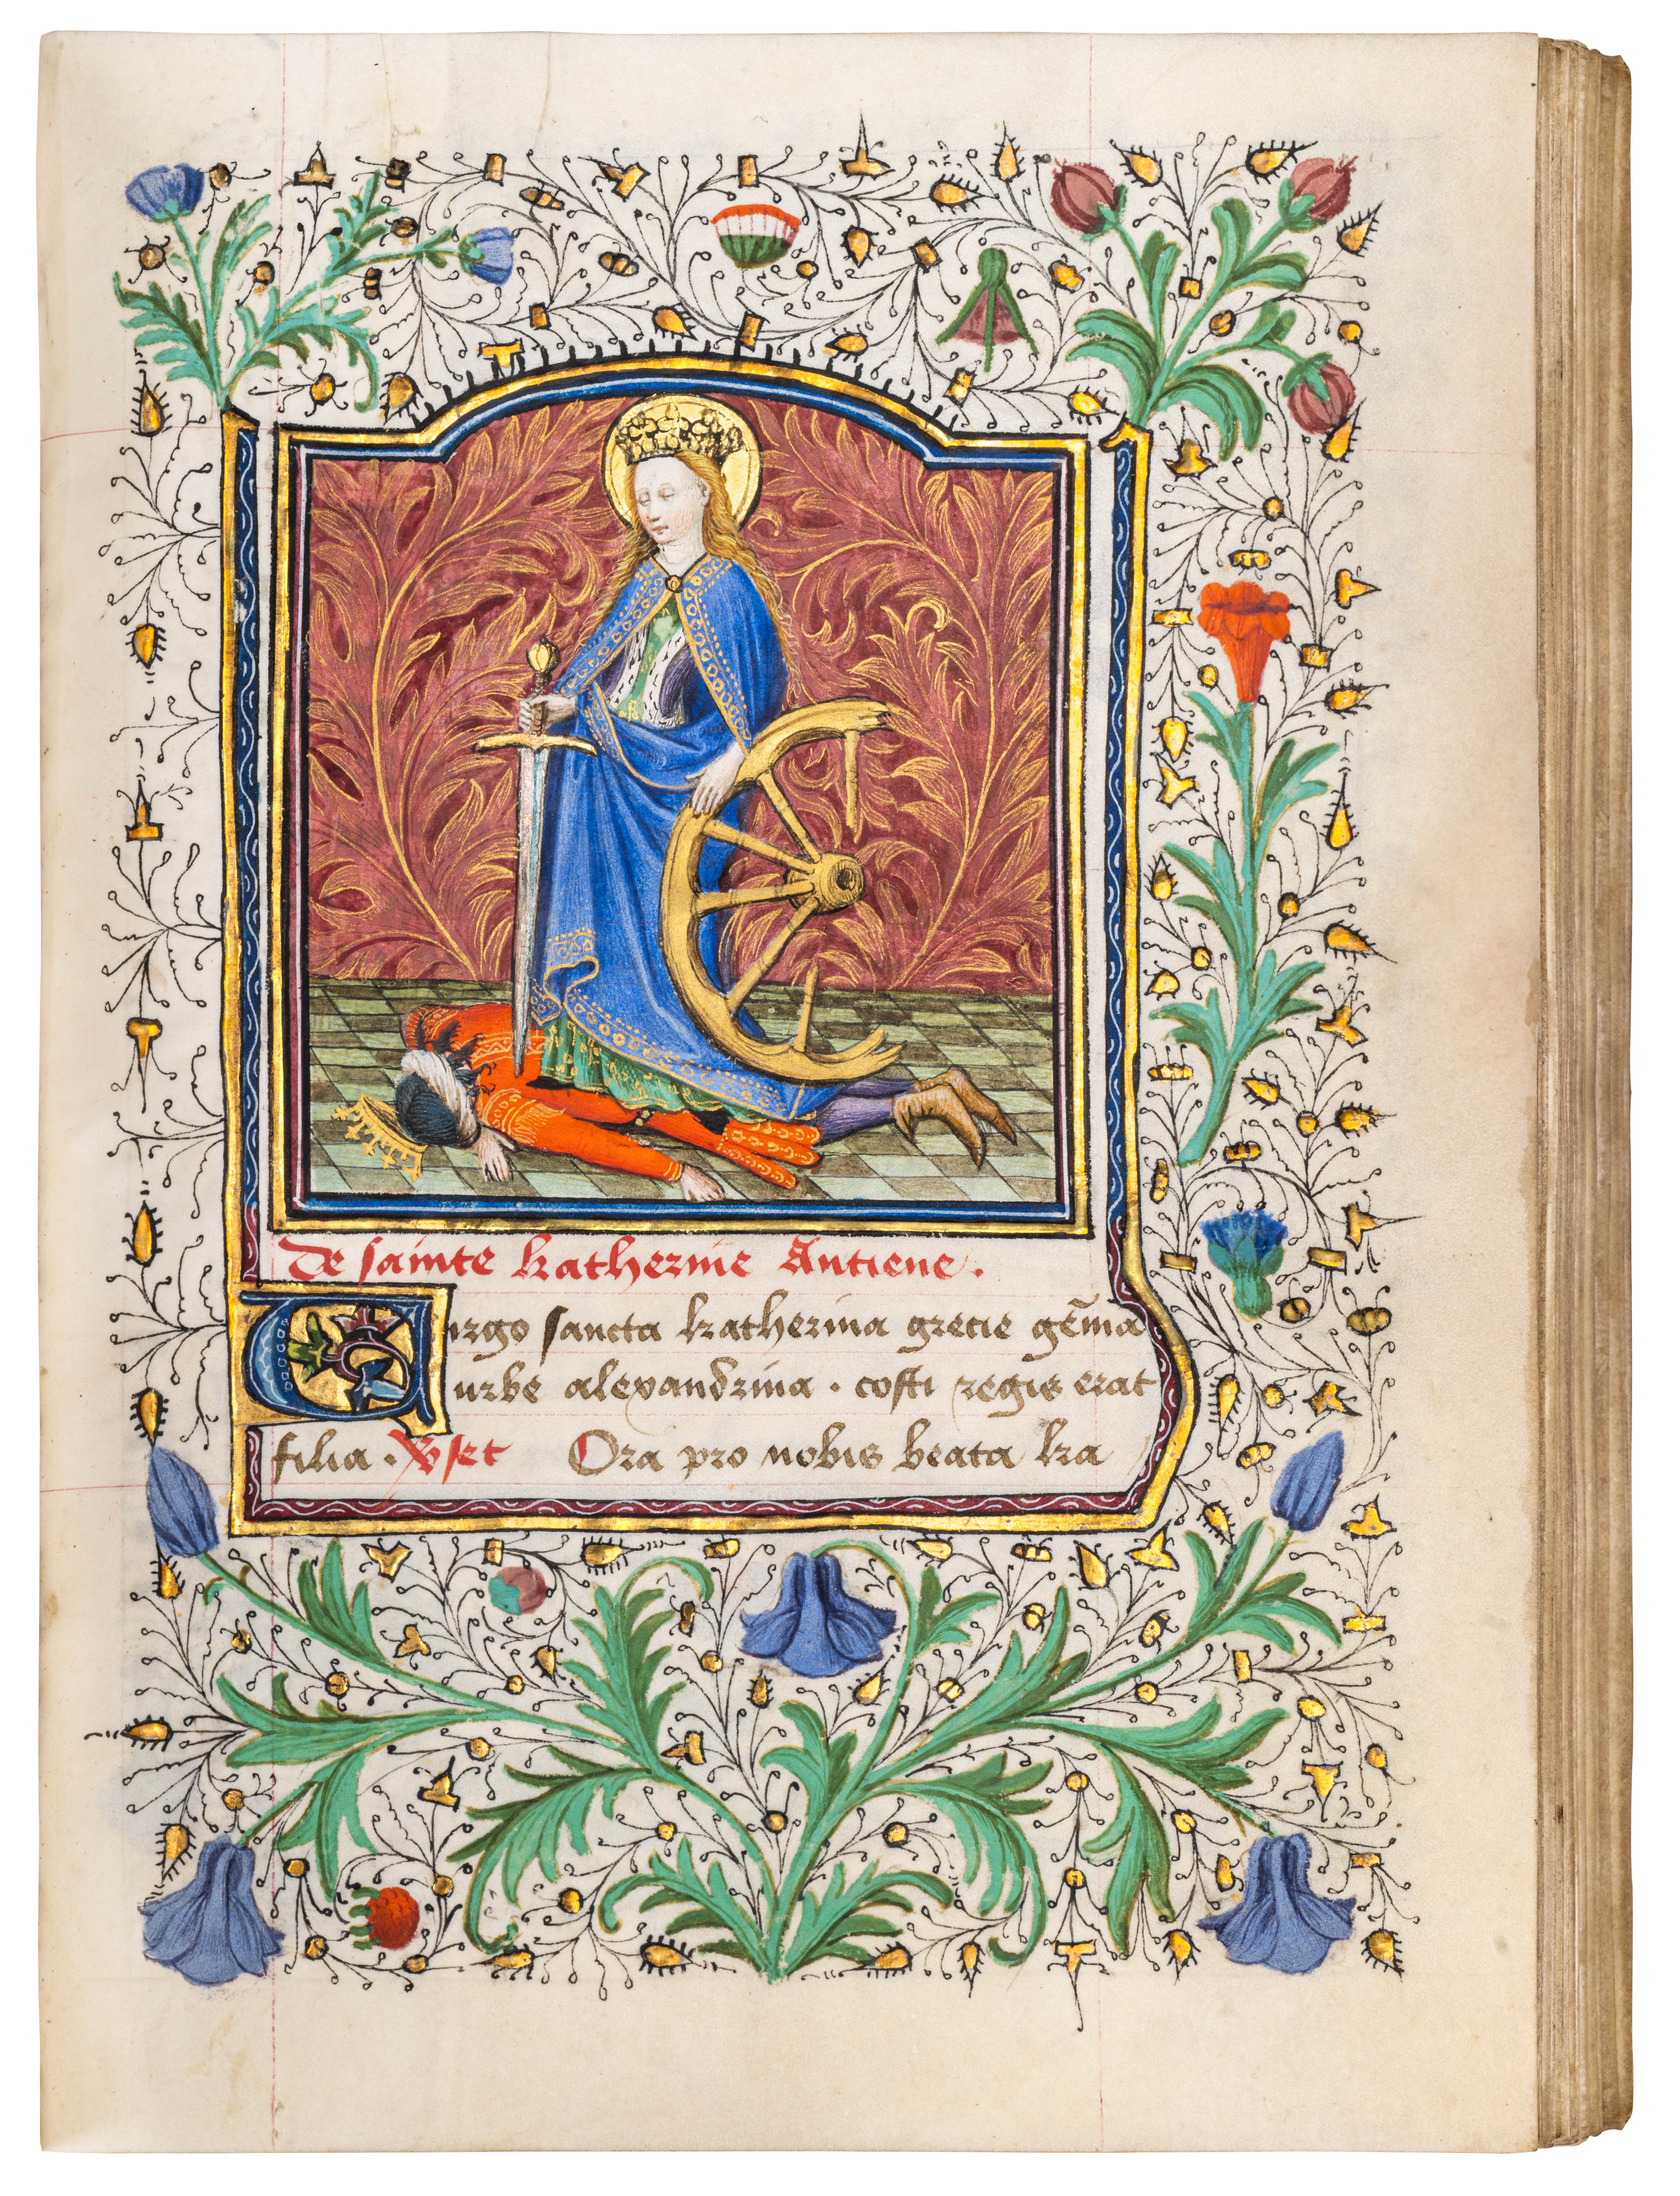 De sainte katherine Antiene.
Virgo sancta katherina grecie gēma
urbe alexandrina . costi regis erat
filia . V̛set Ora pro nobis beata ka